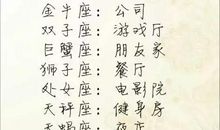 金牛座：公司
双子座：游戏厅
巨蟹座：朋友家
狮子座：餐厅
处女座：电影院
天秤座：健身房
天蝎座：夜店